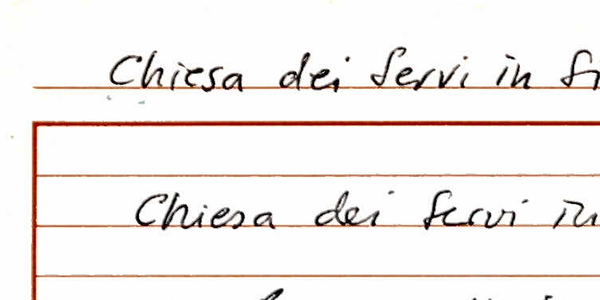 Chiesa dei Servi in
Chiesa dei Servi in